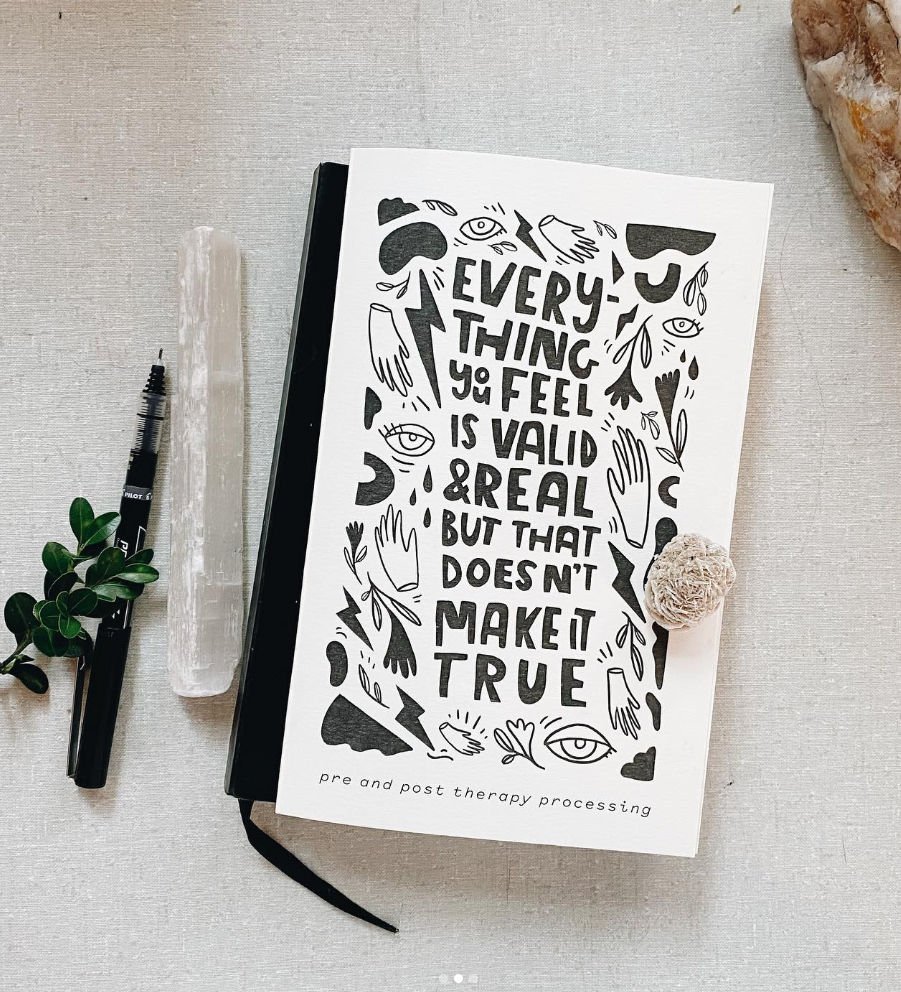 EVERY-
THING
you FEEL
IS VALID
& REAL
BUT THAT
DOESN'T
MAKE IT
TRUE
pre and post therapy processing
PILOT